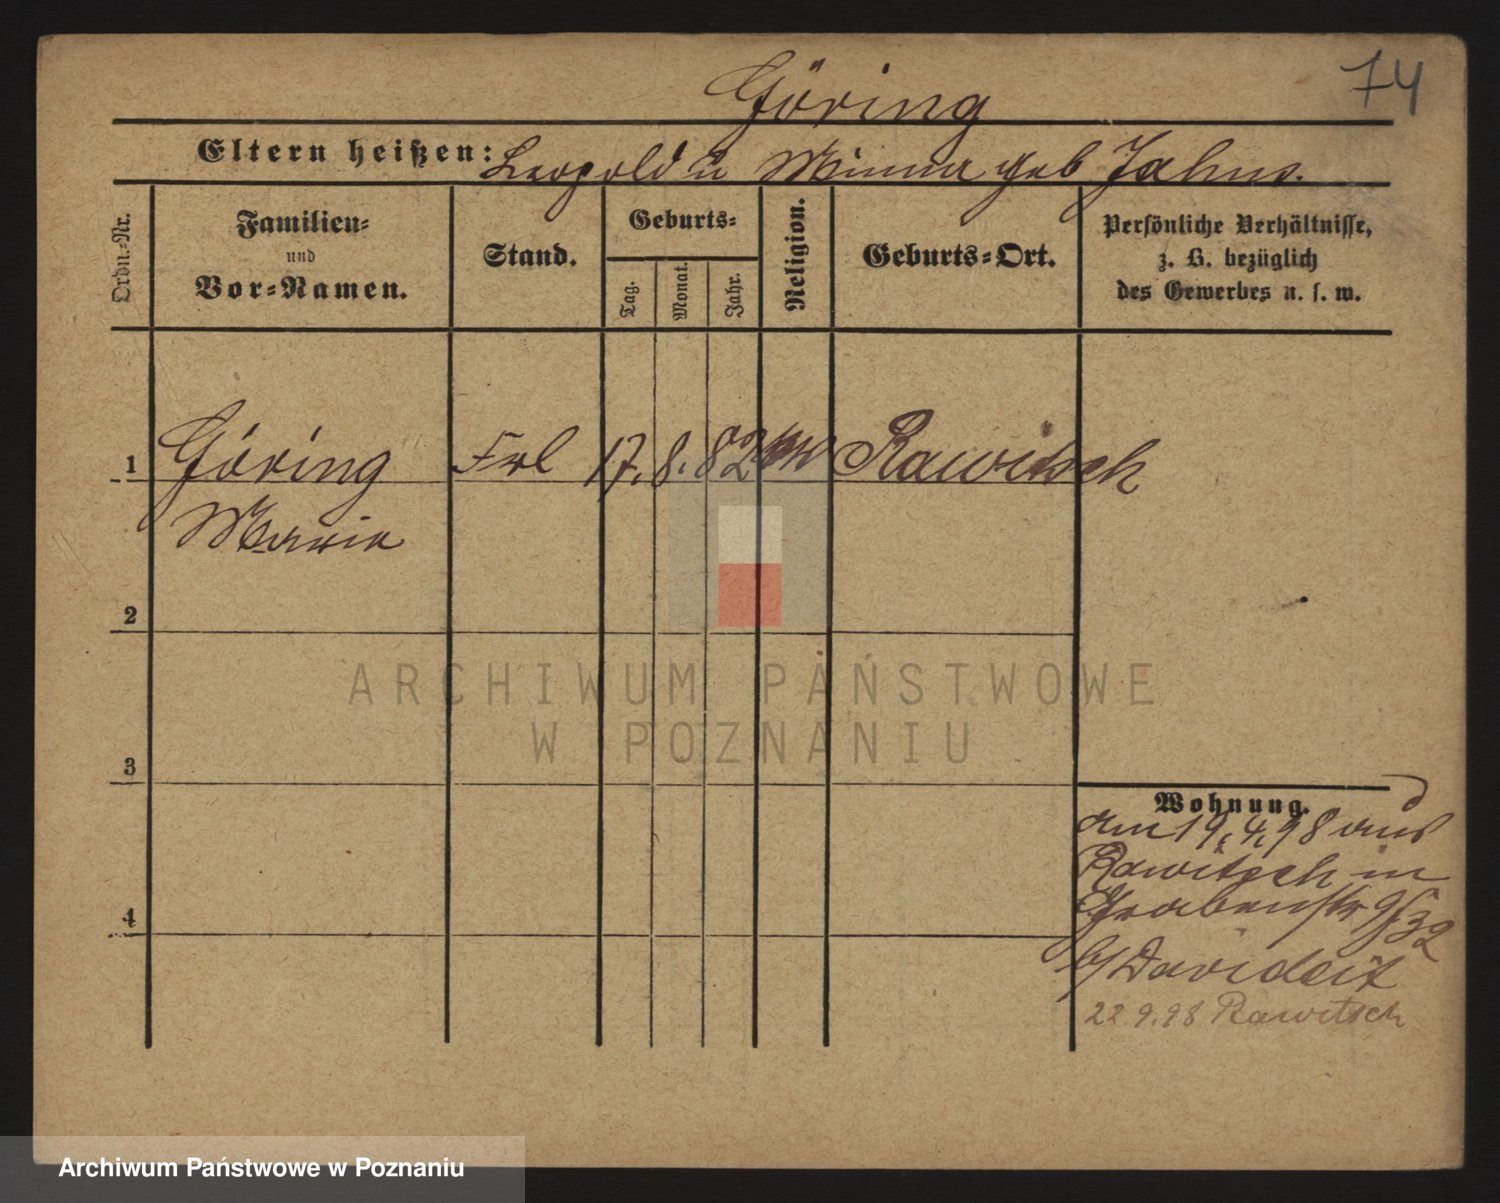 74
Göring
Eltern heißen: Leopold u Minna geb Jahns.
Ordn.-Nr.
Familien-
und
Vor-Namen.
Stand.
Geburts-
Tag.
Monat.
Jahr.
Religion.
Geburts-Ort.
Persönliche Verhältnisse,
z. B. bezüglich
des Gewerbes u. s. w.
1 Göring Frl 17. 8. 82 Rawitsch
Maria
2
3
4
Wohnung.
am 19.4.98 aus
Rawitsch in
Grabenstr 9/32
b/ Davideit
22.9.98 Rawitsch
ARCHIWUM PAŃSTWOWE
W POZNANIU
Archiwum Państwowe w Poznaniu